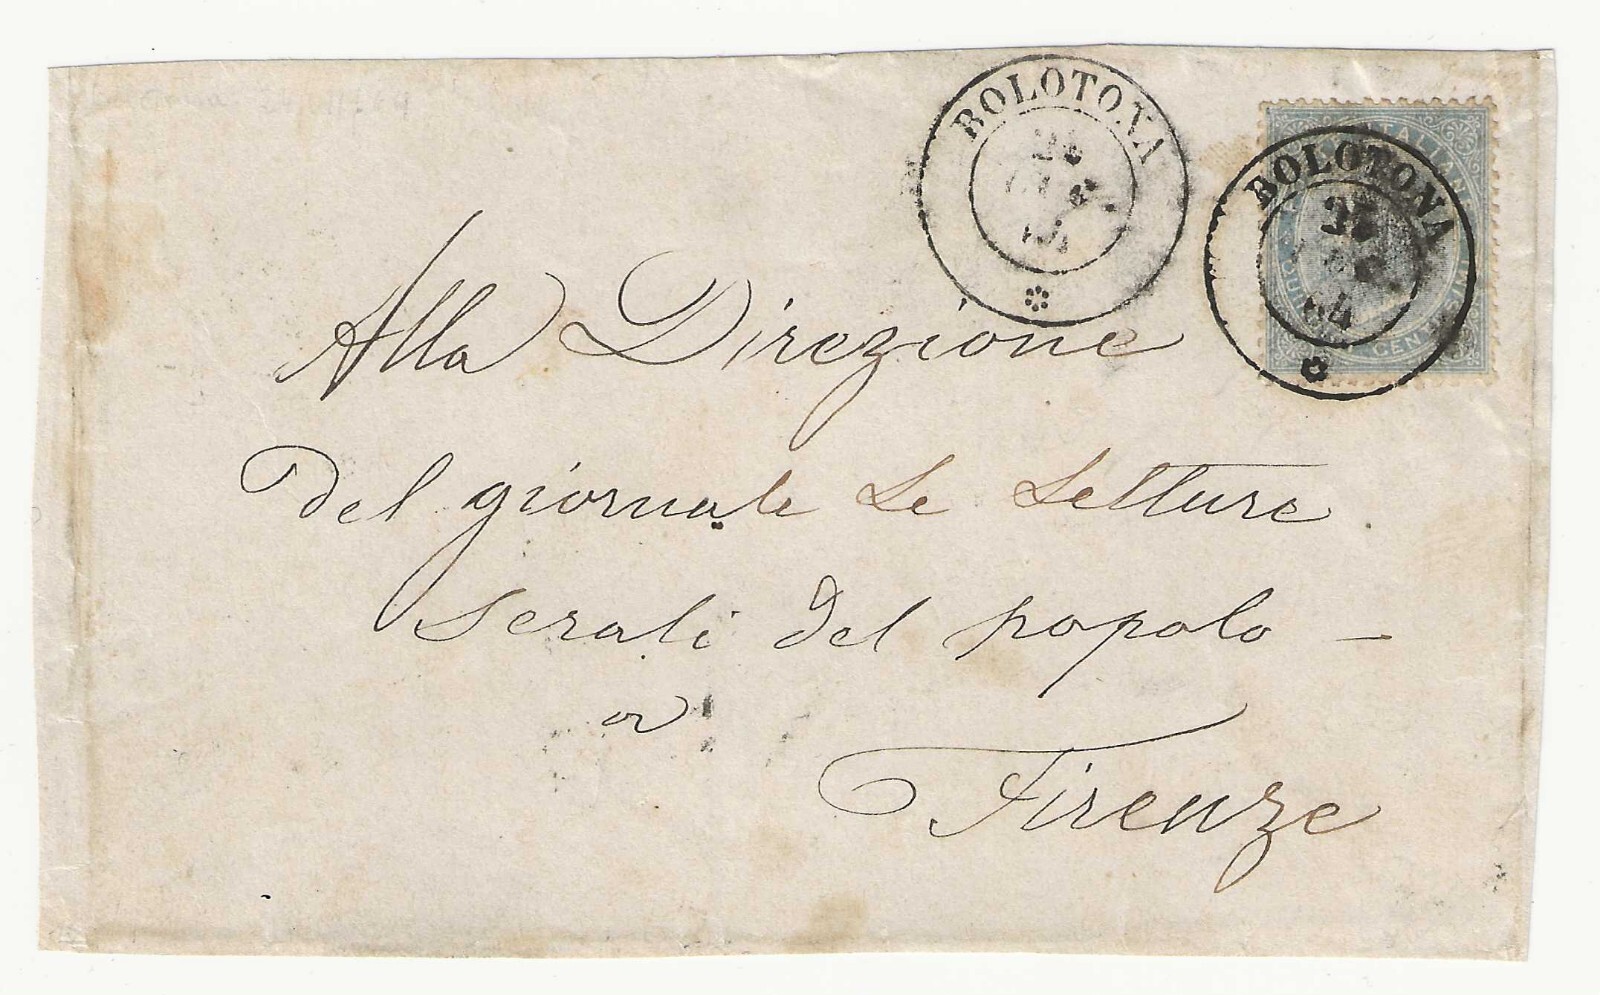 BOLOTONA
BOLOTONA
25
64
Alla Direzione
del giornale Le Letture
serali del popolo –
a
Firenze